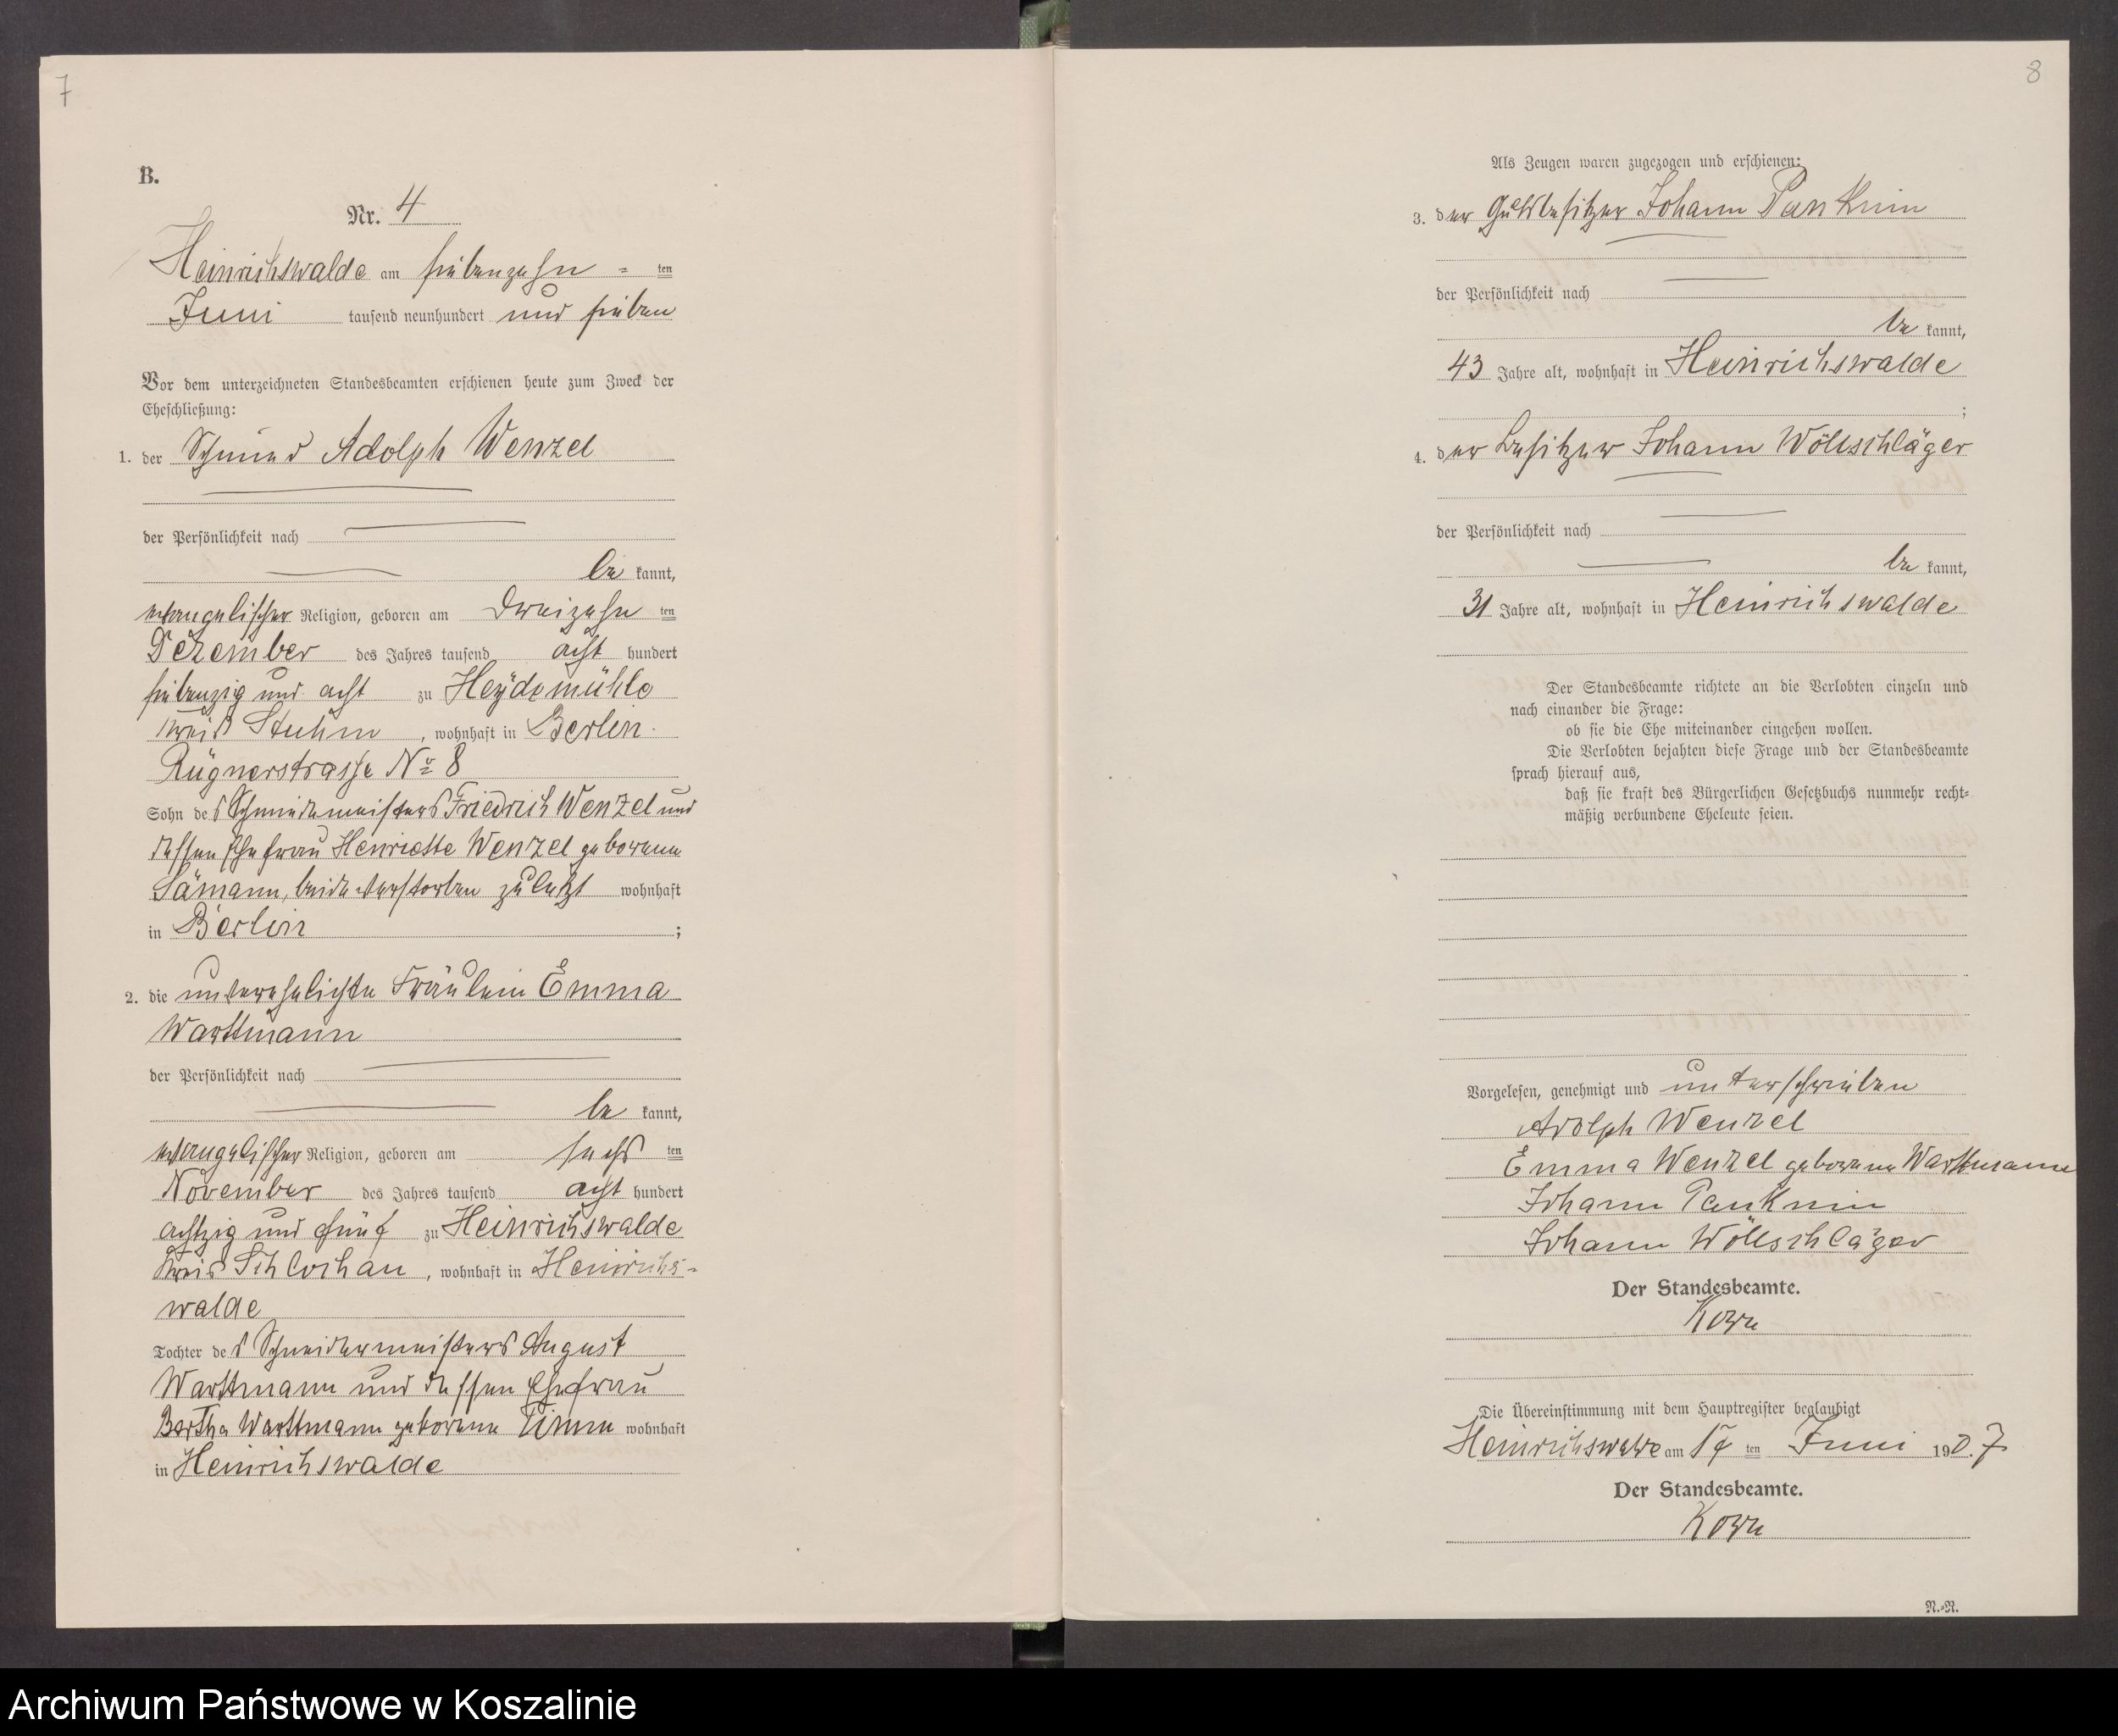 7
B.
Nr. 4
Heinrichswalde am siebenzehn = ten
Juni tausend neunhundert und sieben
Vor dem unterzeichneten Standesbeamten erschienen heute zum Zweck der
Eheschließung:
1. der Schmied Adolph Wenzel
der Persönlichkeit nach
be kannt,
evangelischer Religion, geboren am dreizehn ten
Dezember des Jahres tausend acht hundert
siebenzig und acht zu Heydemühle
Kreis Stuhm, wohnhaft in Berlin.
Rügnerstrasse No 8
Sohn des Schmiedemeisters Friedrich Wenzel und
dessen Ehefrau Henriette Wenzel geborene
Sämann, beide verstorben zuletzt wohnhaft
in Berlin ;
2. die unverehelichte Fräulein Emma
Warttmann
der Persönlichkeit nach
be kannt,
evangelischer Religion, geboren am sechs ten
November des Jahres tausend acht hundert
achtzig und fünf zu Heinrichswalde
Kreis Schlochau, wohnhaft in Heinrichs-
walde
Tochter des Schneidermeisters August
Warttmann und dessen Ehefrau
Bertha Warttmann geborene Timm wohnhaft
in Heinrichswalde
8
Als Zeugen waren zugezogen und erschienen:
3. der Gutsbesitzer Johann Panknin
der Persönlichkeit nach
be kannt,
43 Jahre alt, wohnhaft in Heinrichswalde
;
4. der Besitzer Johann Wöllschläger
der Persönlichkeit nach
be kannt,
31 Jahre alt, wohnhaft in Heinrichswalde
Der Standesbeamte richtete an die Verlobten einzeln und
nach einander die Frage:
ob sie die Ehe miteinander eingehen wollen.
Die Verlobten bejahten diese Frage und der Standesbeamte
sprach hierauf aus,
daß sie kraft des Bürgerlichen Gesetzbuchs nunmehr recht-
mäßig verbundene Eheleute seien.
Vorgelesen, genehmigt und unterschrieben
Adolph Wenzel
Emma Wenzel geborene Warttmann
Johann Panknin
Johann Wöllschläger
Der Standesbeamte.
Korn
Die Übereinstimmung mit dem Hauptregister beglaubigt
Heinrichswalde am 17 ten Juni 190.7
Der Standesbeamte.
Korn
N.-N.
Archiwum Państwowe w Koszalinie